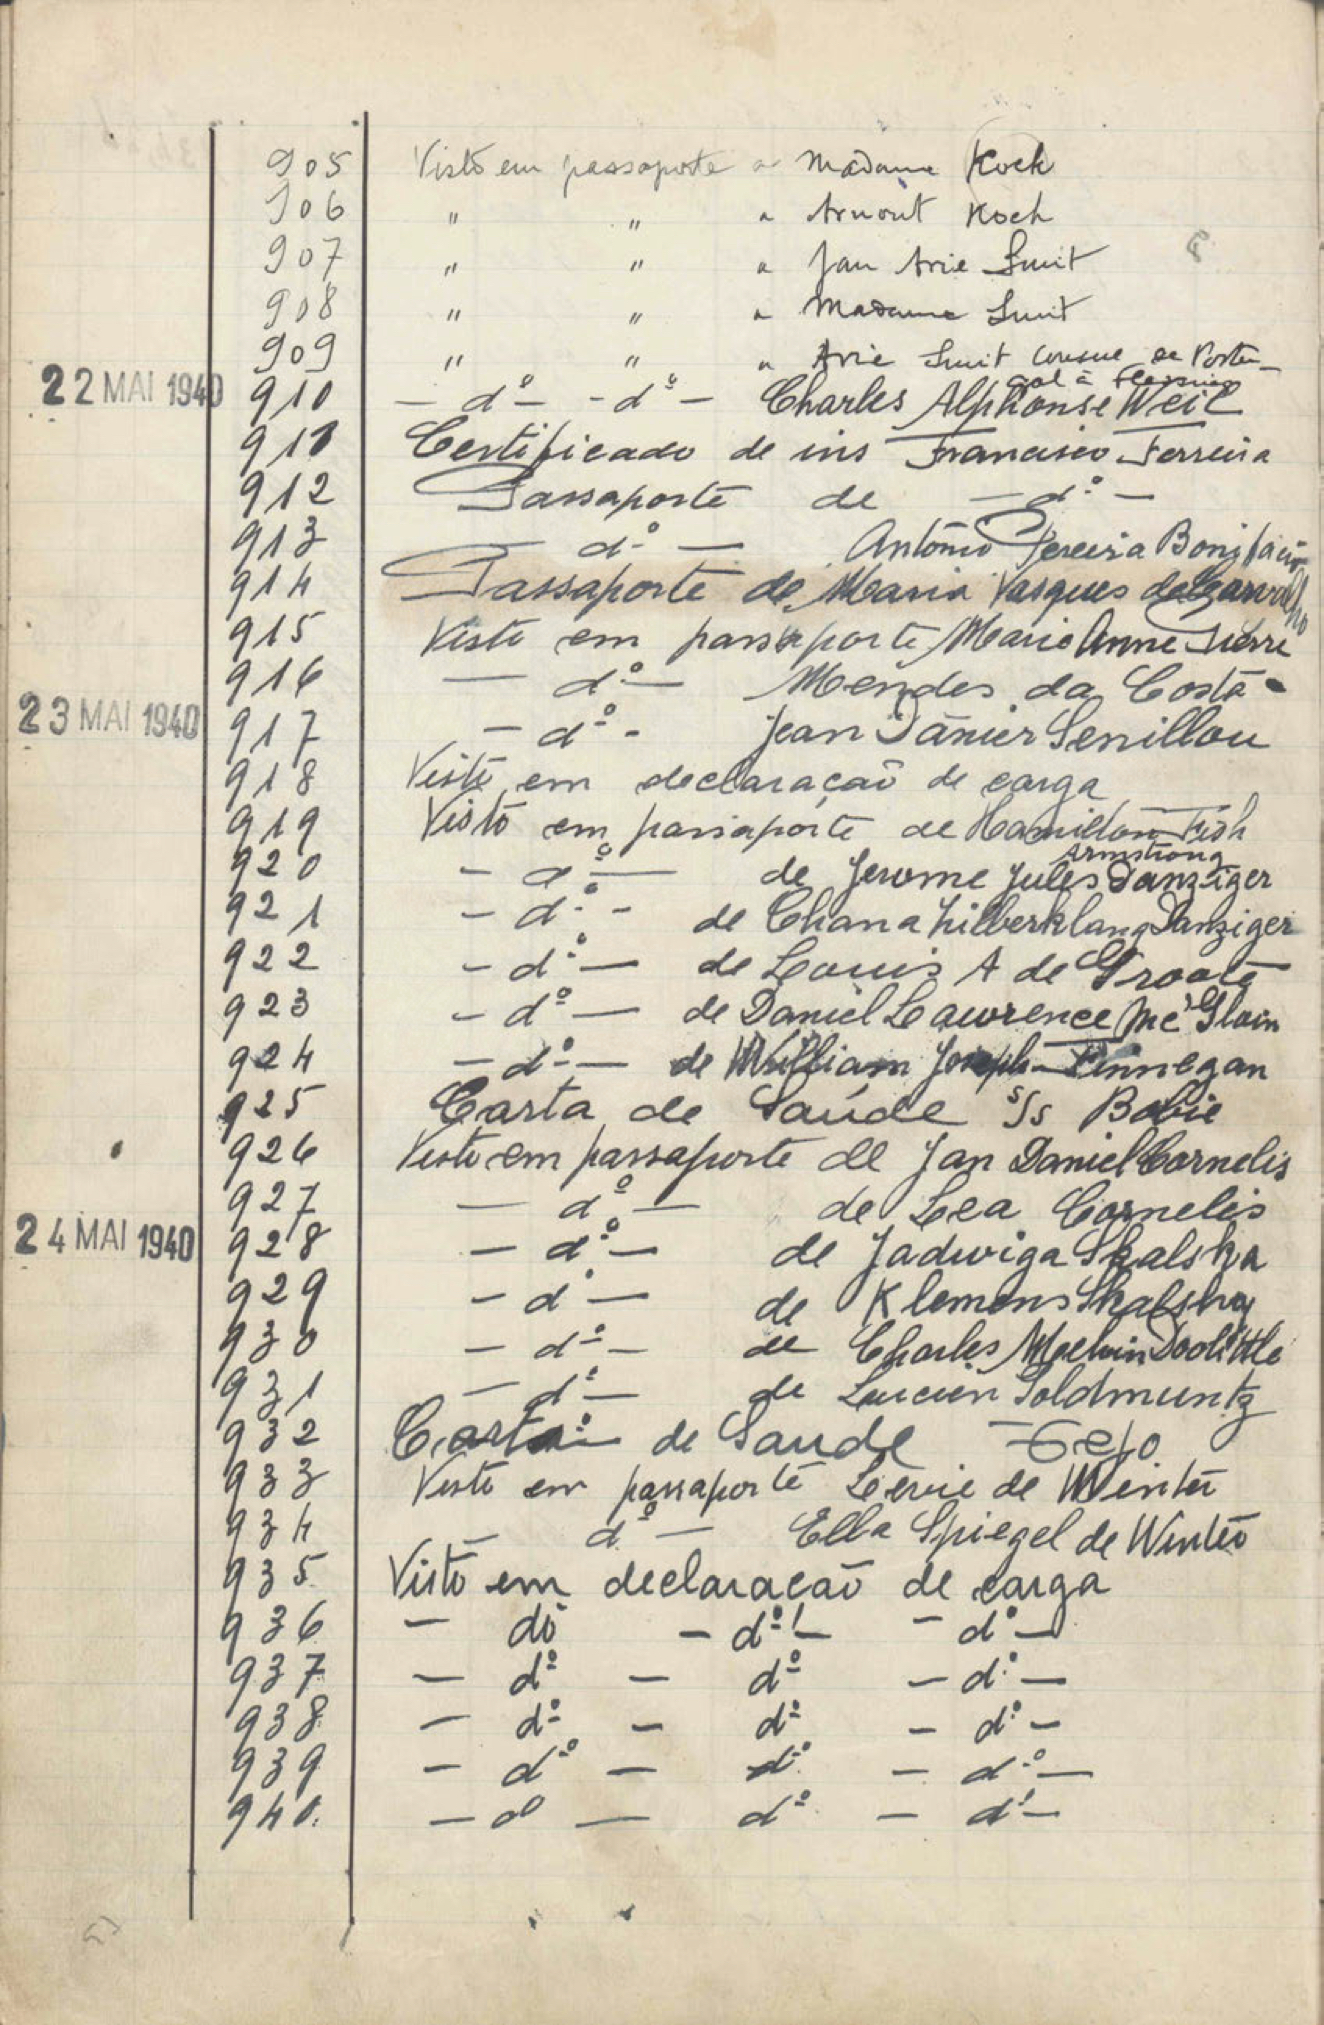 905 Visto em passaporte a Madame Koch
906 " " a Arnout Koch
907 " " a Jan Arie Smit
908 " " a Madame Smit
909 " " a Arie Smit Consul de Portu-
gal à
22 MAI 1940 910 — dº — - dº — Charles Alphonse Weil
911 Certificado de ins Francisco Ferreira
912 Passaporte de — dº —
913 — dº — António Pereira Bonifacio
914 Passaporte de Maria Vasques de Carvalho
915 Visto em passaporte Marie Anne Pierre
916 — dº — Mendes da Costa
23 MAI 1940 917 — dº - Jean Danier Senillou
918 Visto em declaração de carga
919 Visto em passaporte de Hamilton Fish
Armstrong
920 - dº — de Jerome Jules Danziger
921 - dº - de Chana Zilberklang Danziger
922 - dº — de Louis A de Groote
923 - dº — de Daniel Lawrence Mc Gloin
924 — dº — de William Joseph Finnegan
925 Carta de Saúde s/s Bobie
926 Visto em passaporte de Jan Daniel Cornelis
927 — dº — de Lea Cornelis
24 MAI 1940 928 — dº — de Jadwiga Skalska
929 - dº — de Klemens Skalsky
930 - dº — de Charles Melvin Doolittle
931 — dº — de Lucien Goldmuntz
932 Carta de Saude
933 Visto em passaporte Levie de Winter
934 — dº — Ella Spiegel de Winter
935 Visto em declaração de carga
936 — dº — dº — — dº —
937 — dº — dº — dº —
938 — dº — dº — dº —
939 — dº — dº — dº —
940. — dº — dº — dº —